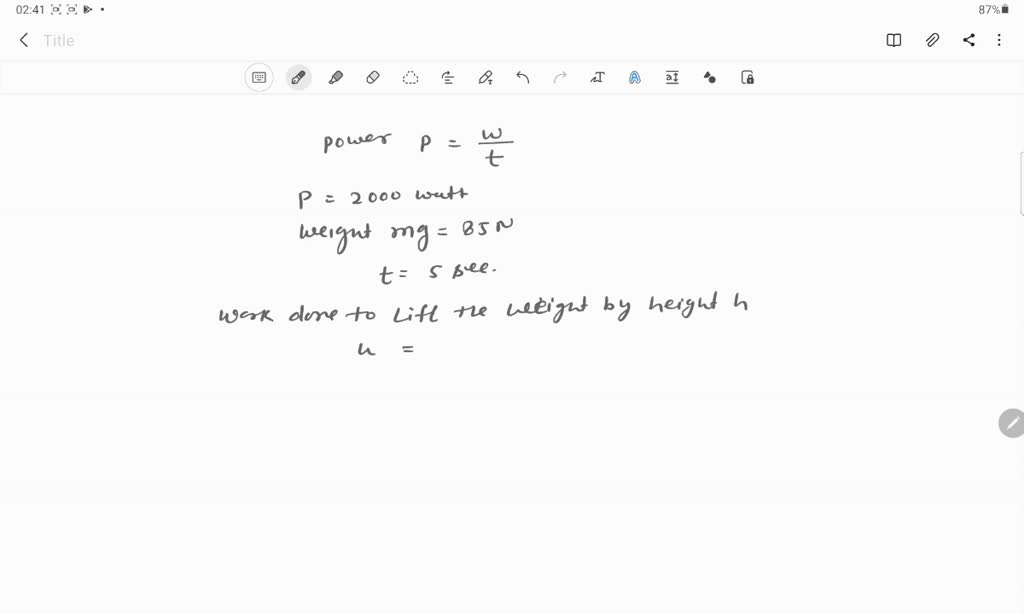 02:41
87%
Title
power P = w/t
P = 2000 watt
weight mg = 85N
t = 5 sec.
work done to Lift the weight by height h
u =